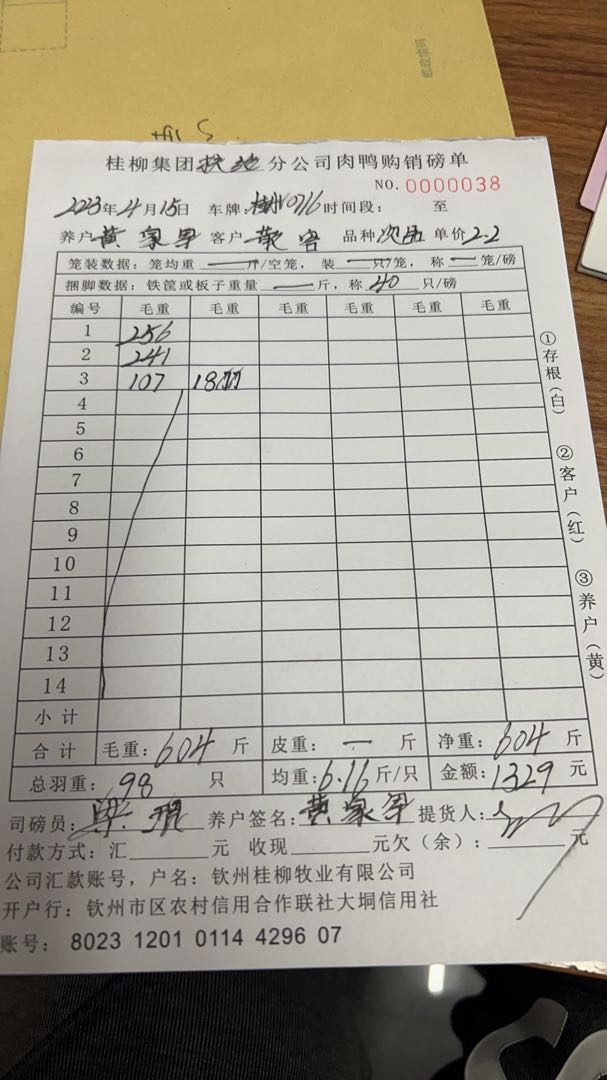 桂柳集团 分公司肉鸭购销磅单
NO. 0000038
2023年4月15日 车牌: 0716 时间段: 至
养户 黄家军 客户 散客 品种 次品 单价 2.2
笼装数据: 笼均重 — 斤/空笼, 装 — 只/笼, 称 — 笼/磅
捆脚数据: 铁筐或板子重量 — 斤, 称 40 只/磅
编号 毛重 毛重 毛重 毛重 毛重 毛重
1 256
2 241
3 107 18只
4
5
6
7
8
9
10
11
12
13
14
小计
合计 毛重: 604 斤 皮重: — 斤 净重: 604 斤
总羽重: 98 只 均重: 6.16 斤/只 金额: 1329 元
司磅员: 养户签名: 黄家军 提货人:
付款方式: 汇 元 收现 元欠(余): 元
公司汇款账号, 户名: 钦州桂柳牧业有限公司
开户行: 钦州市区农村信用合作联社大垌信用社
账号: 8023 1201 0114 4296 07
①存根(白)
②客户(红)
③养户(黄)